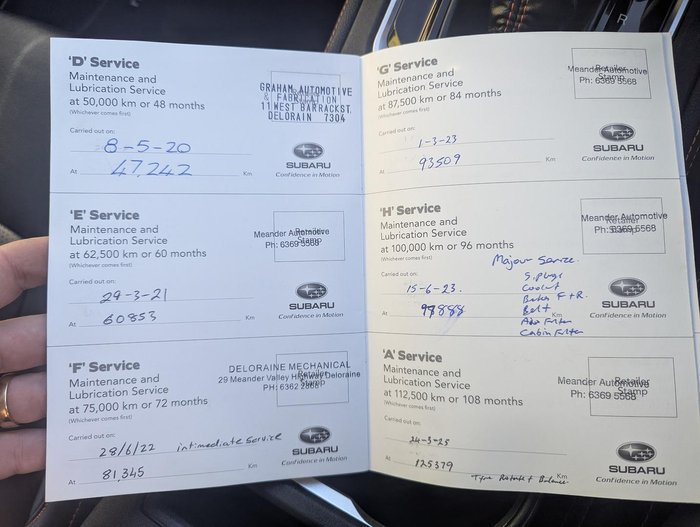 'D' Service
Maintenance and
Lubrication Service
at 50,000 km or 48 months
(Whichever comes first)
GRAHAM AUTOMOTIVE
& FABRICATION
11 WEST BARRACK ST.
DELORAIN 7304
Carried out on:
8-5-20
At 47,242 Km
SUBARU
Confidence in Motion
'E' Service
Maintenance and
Lubrication Service
at 62,500 km or 60 months
(Whichever comes first)
Retailer
Meander Automotive
Stamp
Ph: 6369 5568
Carried out on:
29-3-21
At 60853 Km
SUBARU
Confidence in Motion
'F' Service
Maintenance and
Lubrication Service
at 75,000 km or 72 months
(Whichever comes first)
DELORAINE MECHANICAL
29 Meander Valley Highway Deloraine
Retailer
Stamp
PH: 6362 2868
Carried out on:
28/6/22 intimediate service
At 81,345 Km
SUBARU
Confidence in Motion
'G' Service
Maintenance and
Lubrication Service
at 87,500 km or 84 months
(Whichever comes first)
Retailer
Meander Automotive
Stamp
Ph: 6369 5568
Carried out on:
1-3-23
At 93509 Km
SUBARU
Confidence in Motion
'H' Service
Maintenance and
Lubrication Service
at 100,000 km or 96 months
(Whichever comes first)
Meander Automotive
Retailer
Stamp
Ph: 6369 5568
Majour Service.
Carried out on:
15-6-23.
At 98888
S.plugs
Coolant
Brakes F+R.
Belt
Filter
Cabin Filter
SUBARU
Confidence in Motion
'A' Service
Maintenance and
Lubrication Service
at 112,500 km or 108 months
(Whichever comes first)
Retailer
Meander Automotive
Stamp
Ph: 6369 5568
Carried out on:
24-3-25
At 125379 Km
Tyre Rotate + Balance
SUBARU
Confidence in Motion